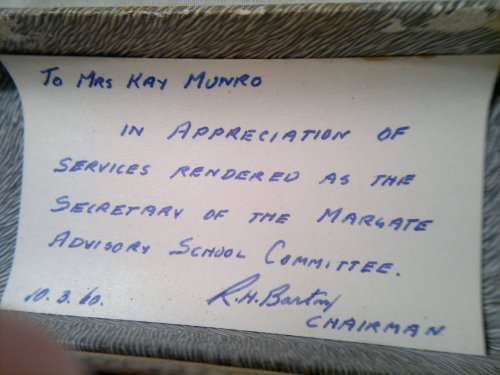 To Mrs Kay Munro
in Appreciation of
services rendered as the
Secretary of the Margate
Advisory School Committee.
10.3.60.
R.H.
CHAIRMAN